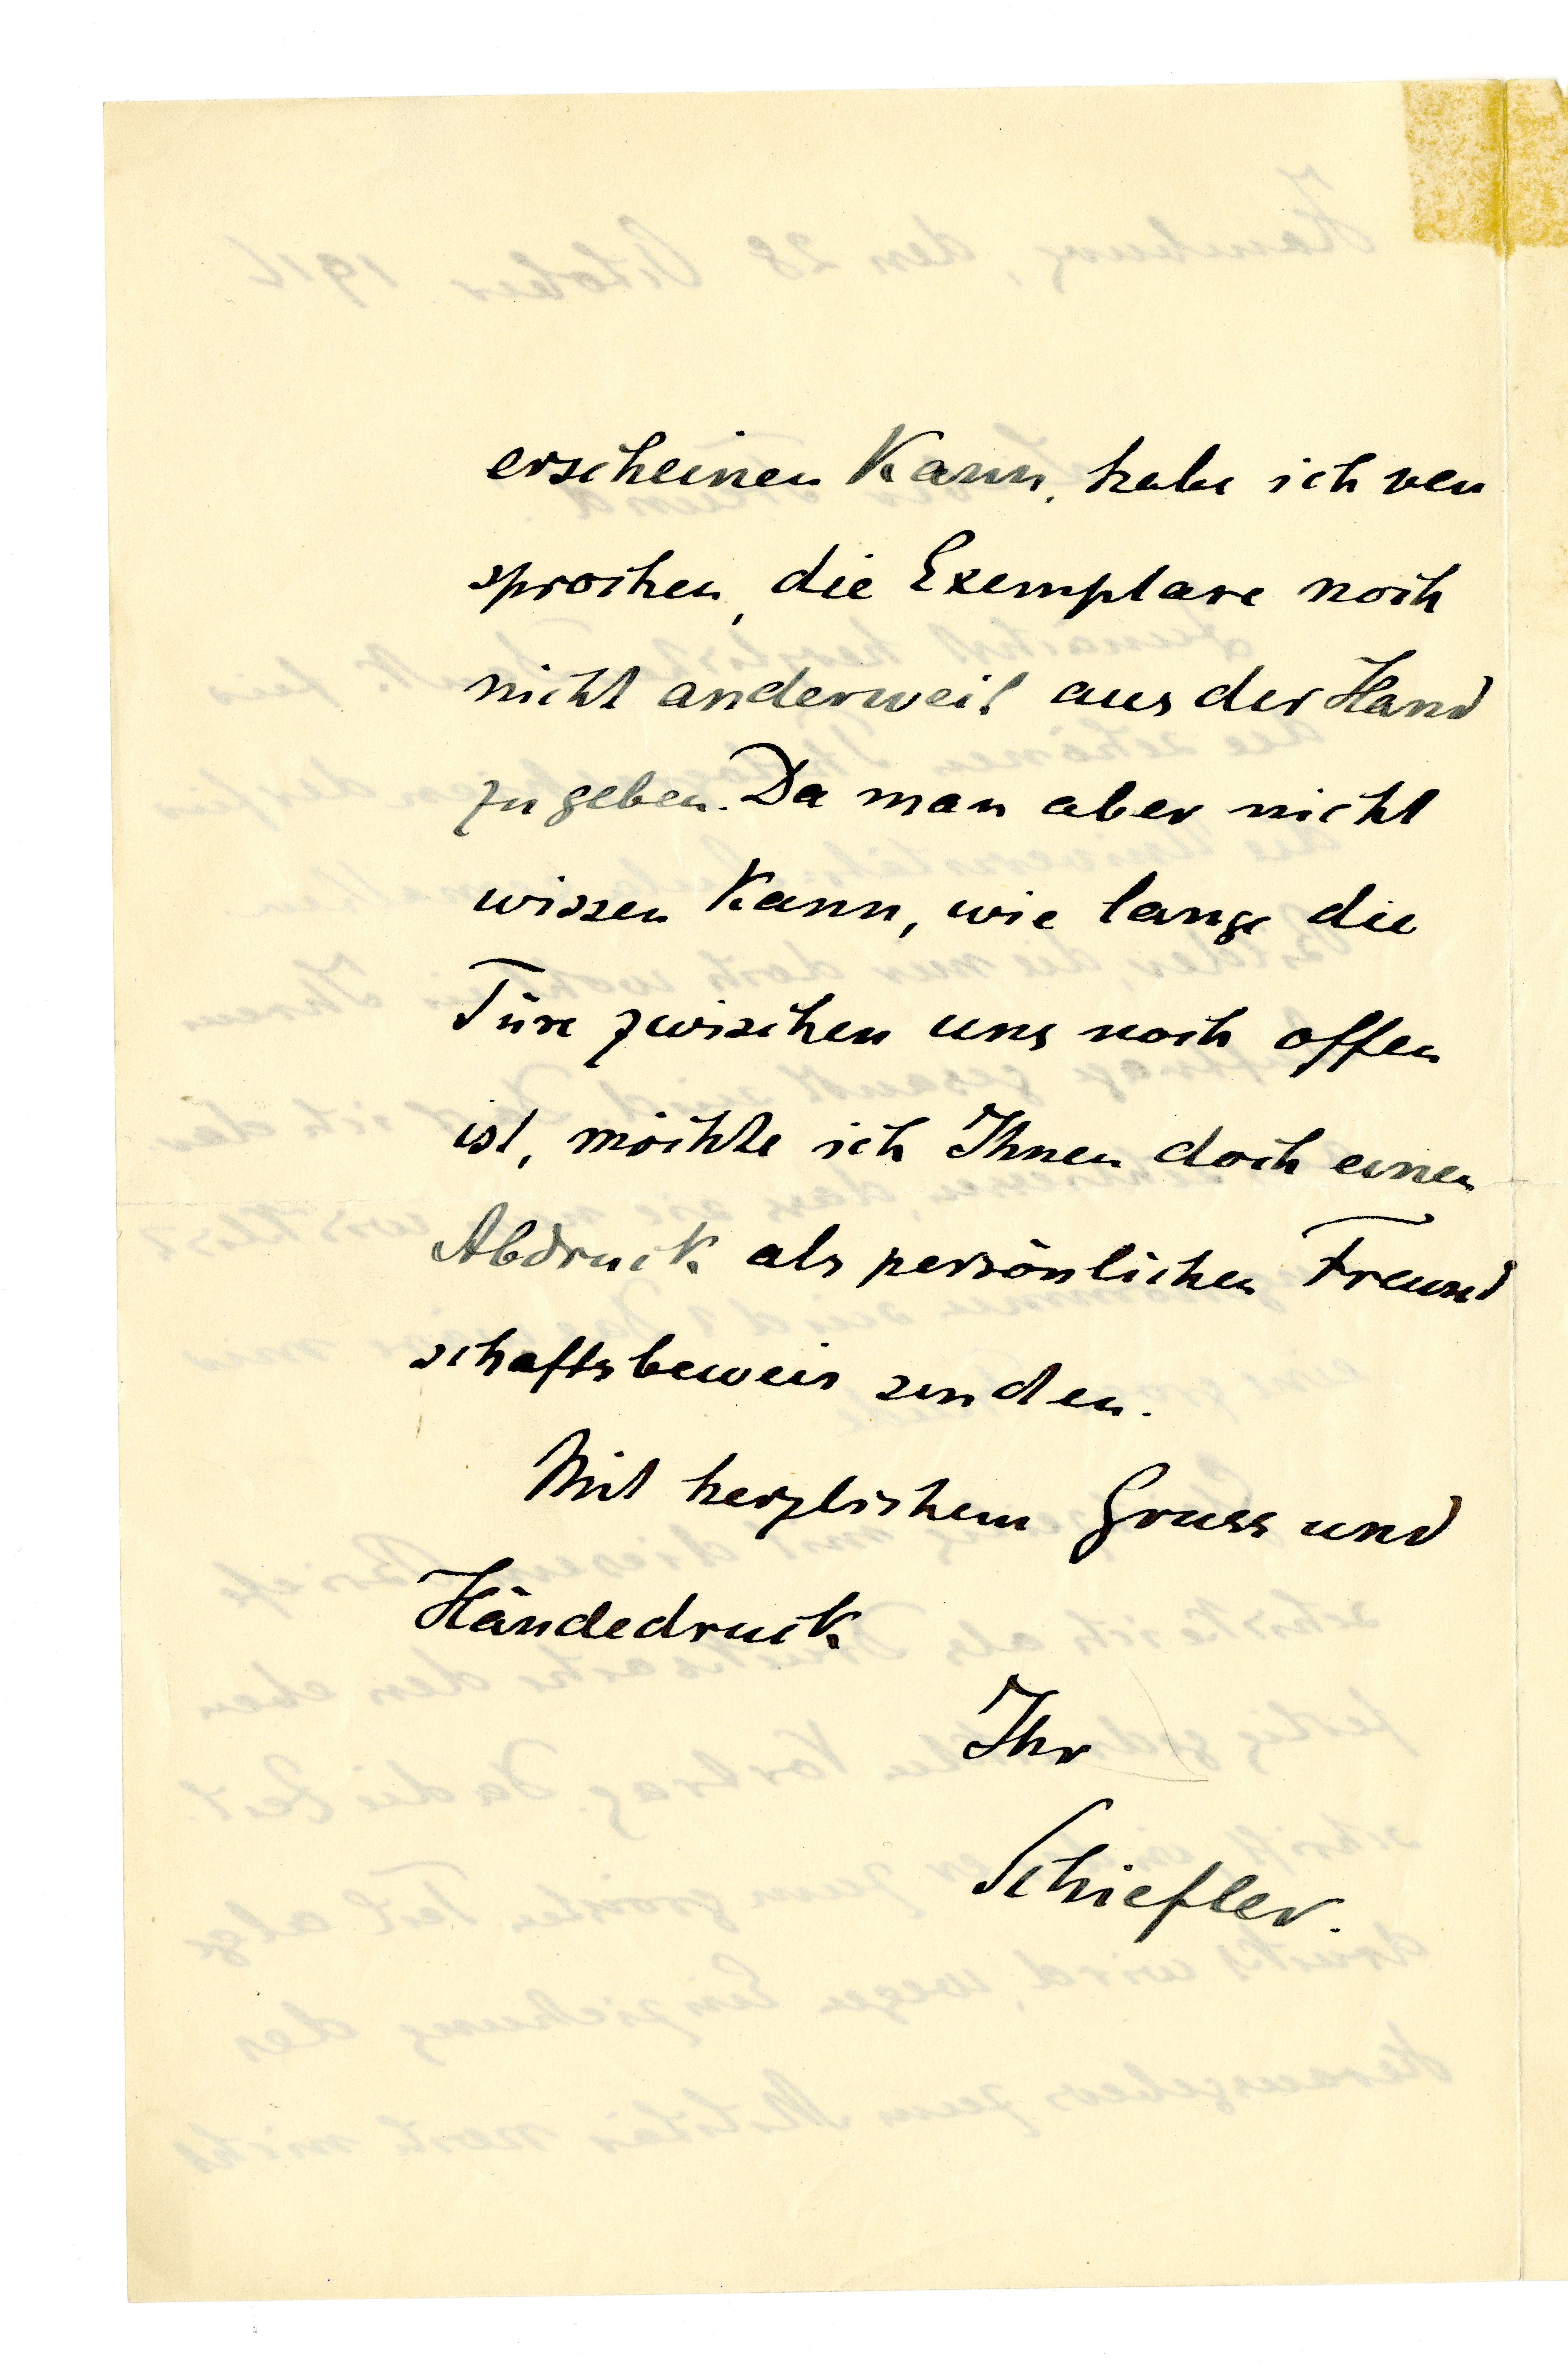 erscheinen kann, habe ich ver
sprochen, die Exemplare noch
nicht anderweit aus der Hand
zu geben. Da man aber nicht
wissen kann, wie lange die
Türe zwischen uns noch offen
ist, möchte ich Ihnen doch einen
Abdruck als persönlichen Freund
schaftsbeweis senden.
Mit herzlichem Gruss und
Händedruck
Ihr
Schiefler.